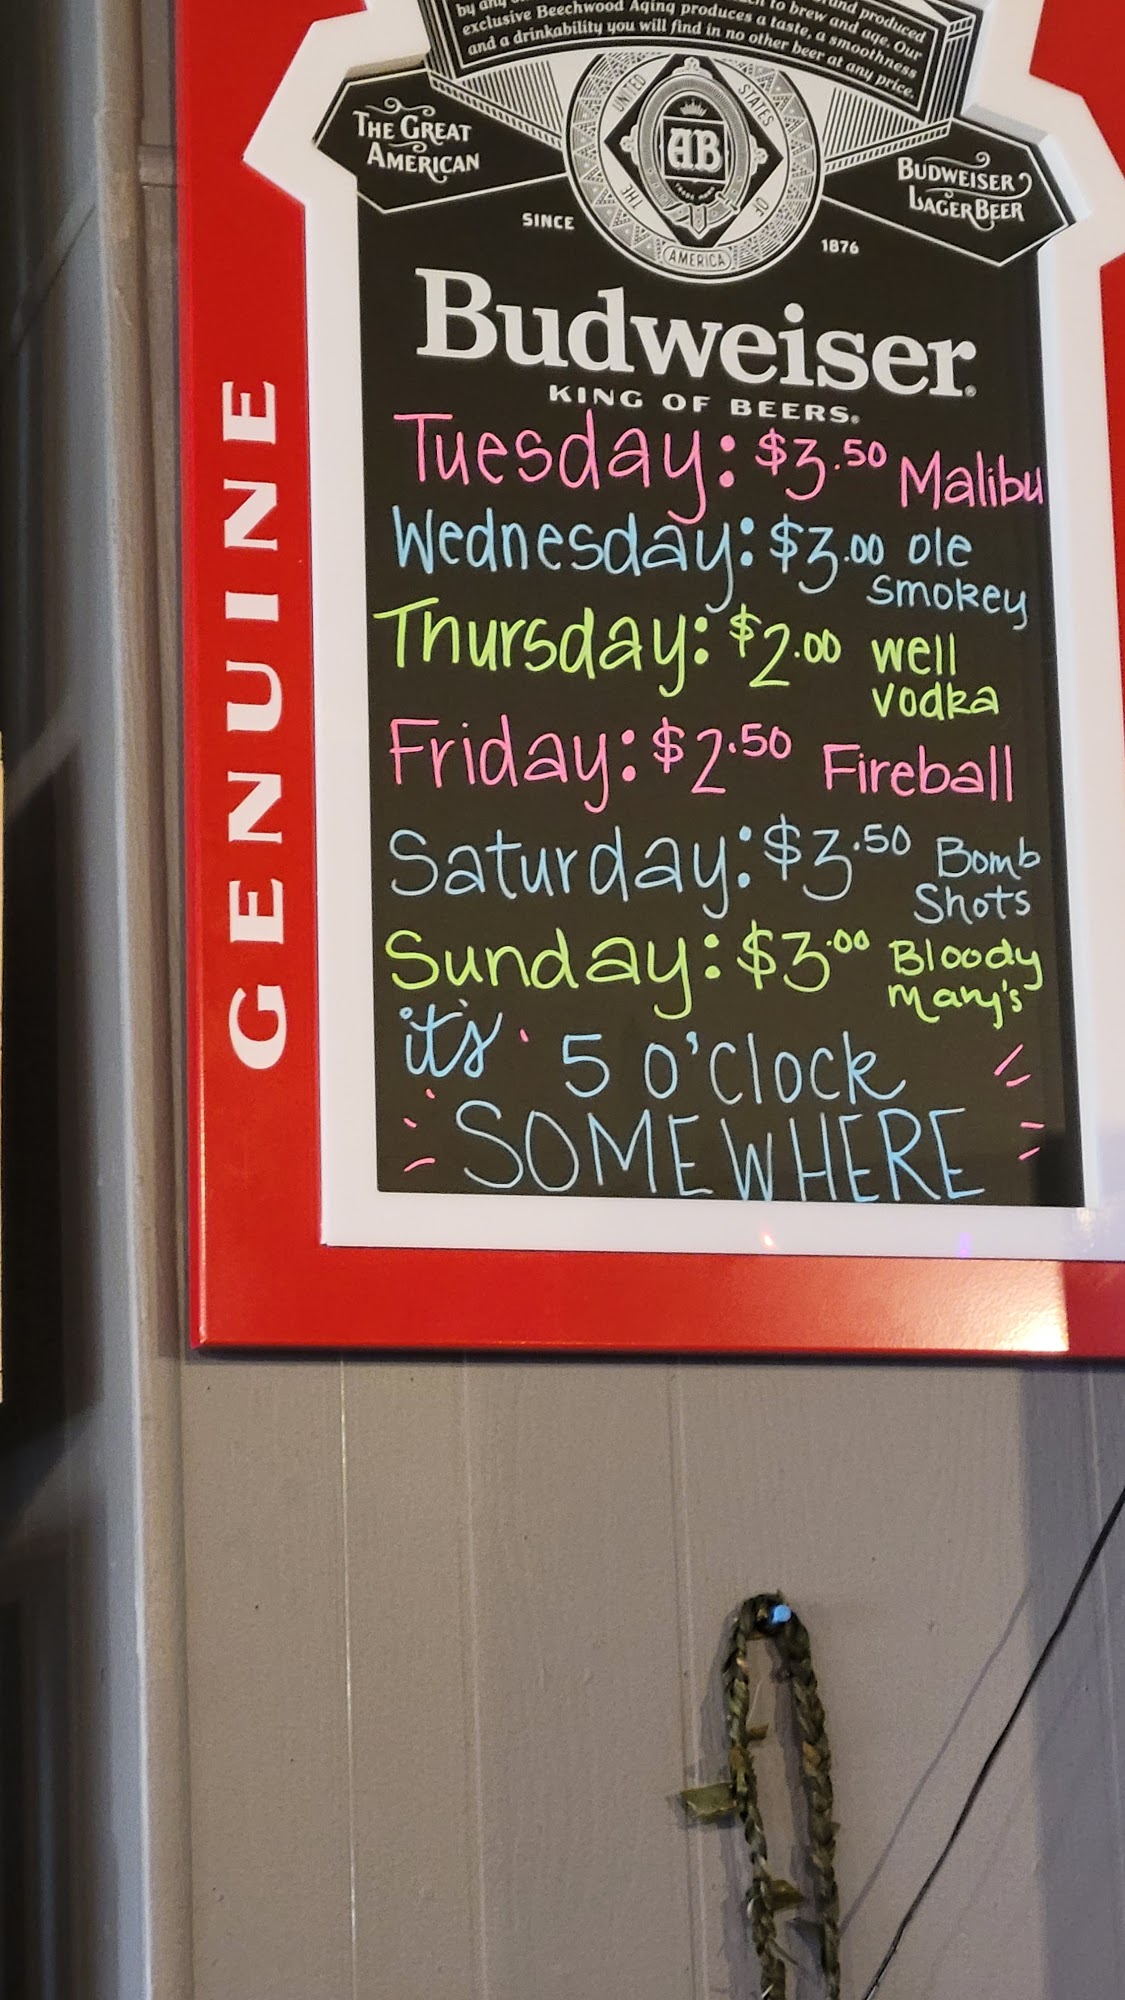 to brew and age. Our
exclusive Beechwood Aging produces a taste, a smoothness
and a drinkability you will find in no other beer at any price.
THE GREAT
AMERICAN
UNITED STATES OF AMERICA THE
AB
BUDWEISER
LAGER BEER
SINCE
1876
Budweiser®
KING OF BEERS®
GENUINE
Tuesday: $3.50 Malibu
Wednesday: $3.00 ole
smokey
Thursday: $2.00 well
vodka
Friday: $2.50 Fireball
Saturday: $3.50 Bomb
Shots
Sunday: $3.00 Bloody
Mary's
it's 5 o'clock
SOMEWHERE